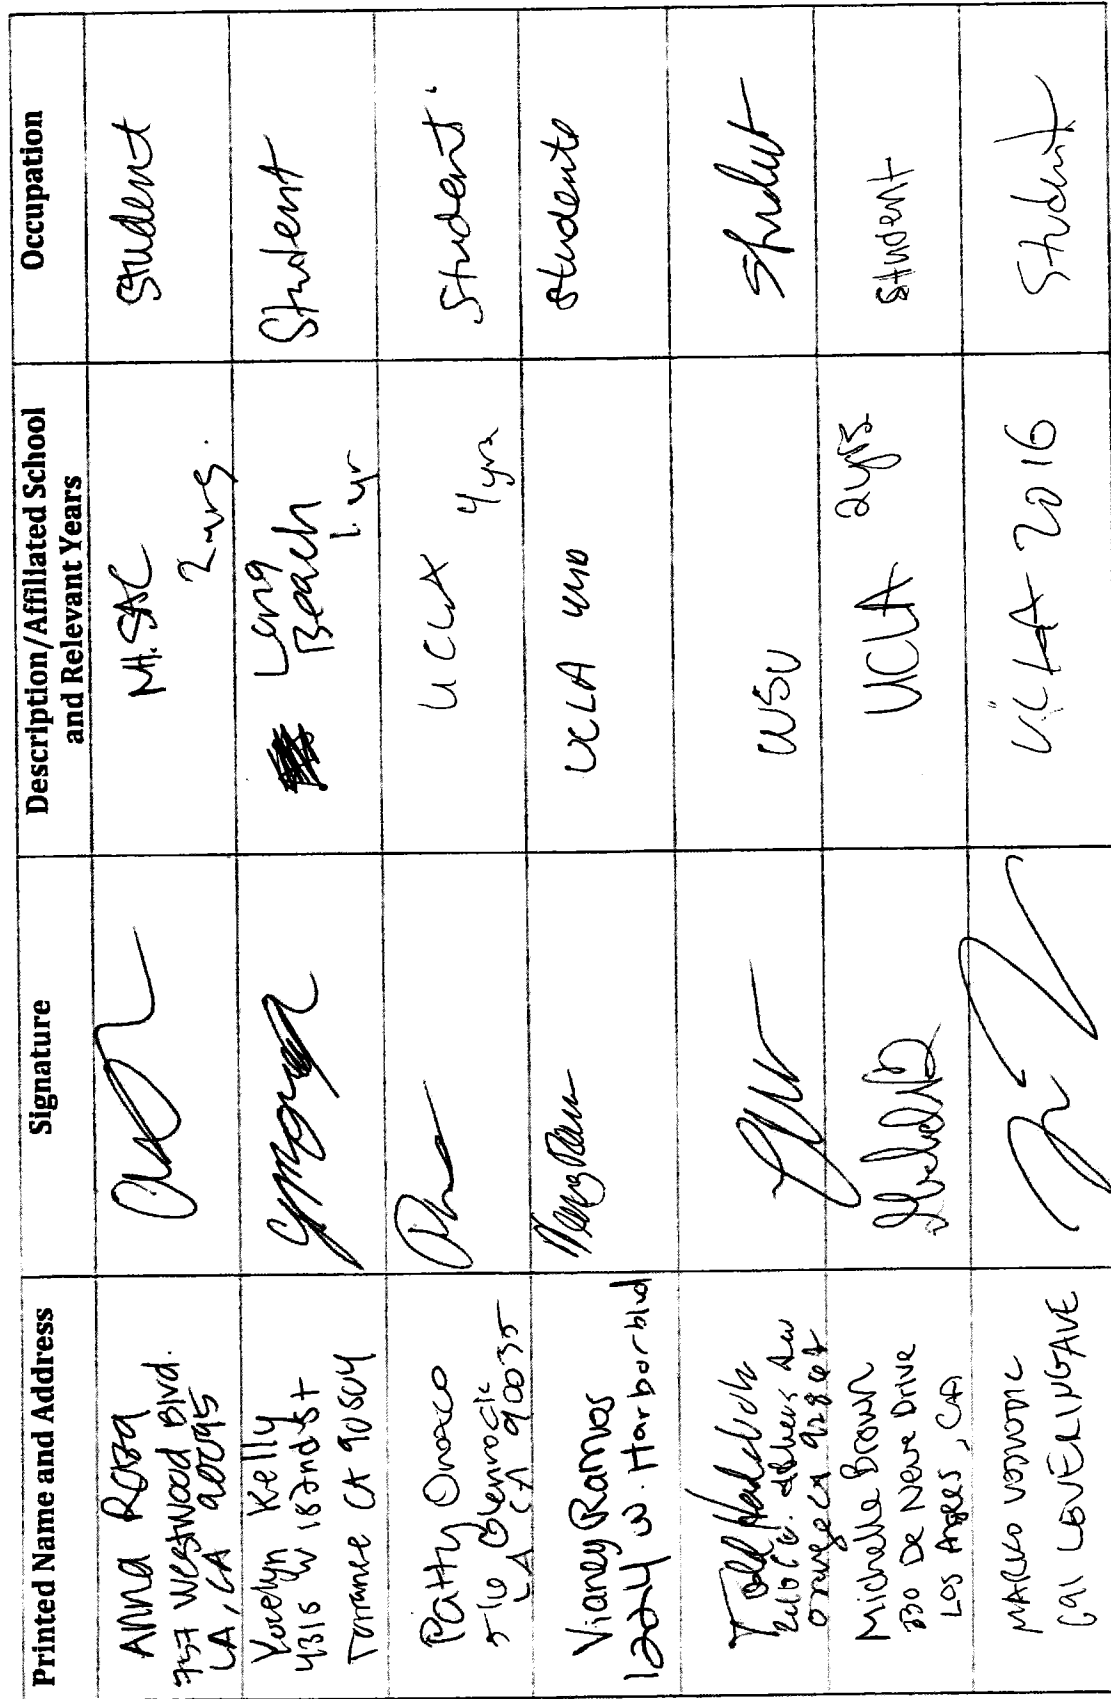 Printed Name and Address
Signature
Description/Affiliated School
and Relevant Years
Occupation
Anna Roza
757 Westwood Blvd.
LA, CA 90095
Mt. SAC
2 yrs.
Student
Kelly
4315 W 182nd St
Torrance CA 90504
Long
Beach
1 yr
Student
Patty Orozco
516 Glenrock
LA CA 90035
UCLA
4 yrs
Student
Vianey Ramos
1224 W. Harbor blvd
UCLA
students
Todd
Orange CA
WSU
Student
Michelle Brown
330 De Neve Drive
Los Angeles, CA
UCLA
2 yrs
Student
MARKO
691 LEVERING AVE
UCLA 2016
Student